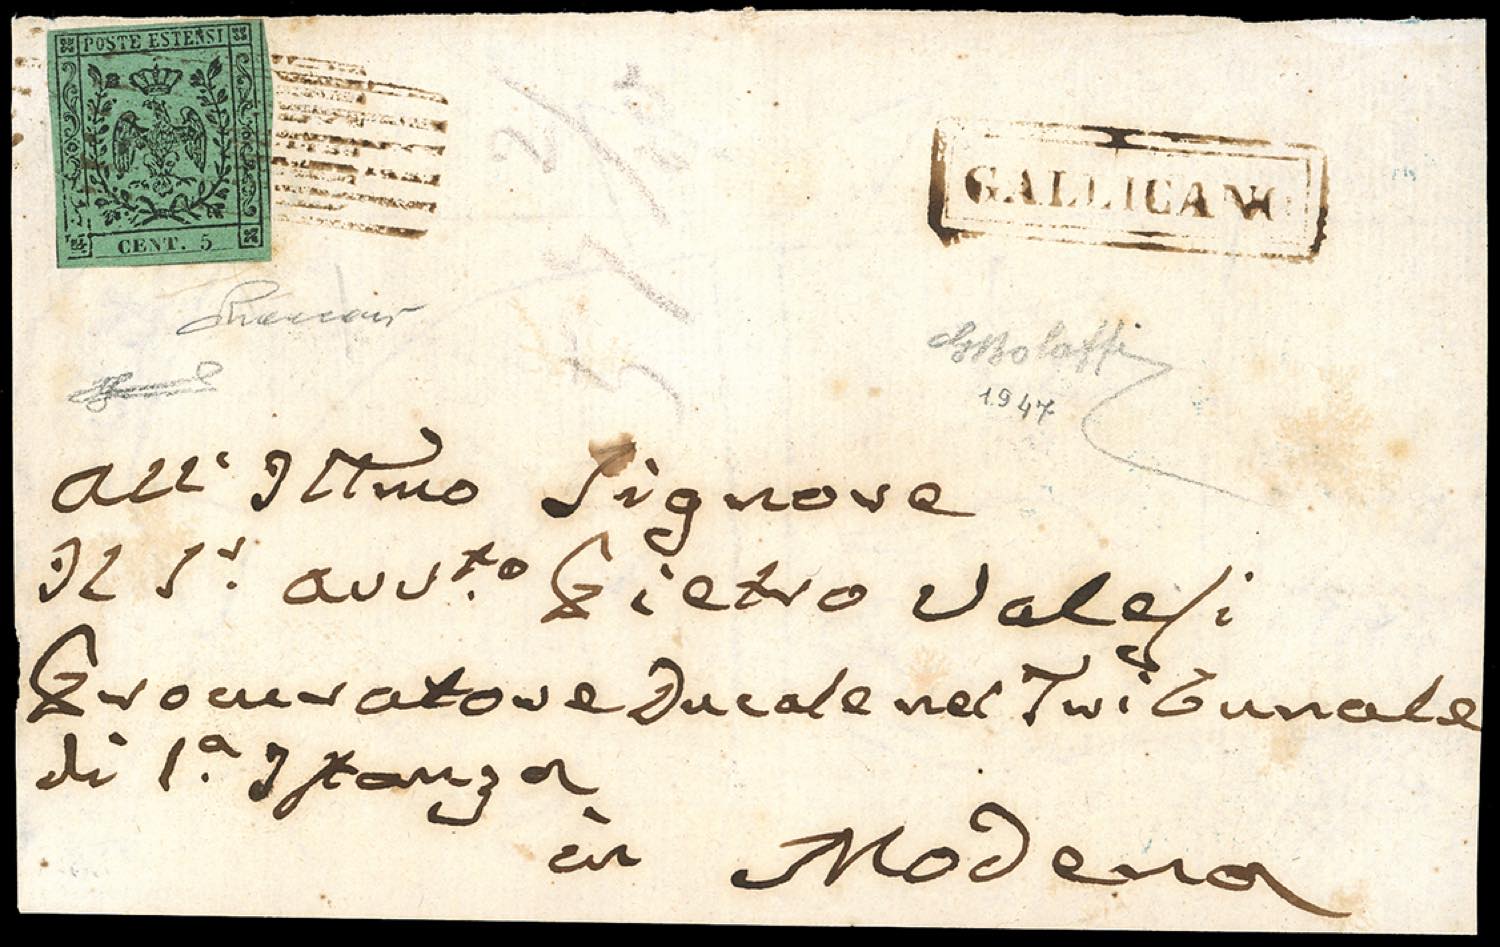 POSTE ESTENSI
CENT. 5
GALLICANO
GBolaffi
1947
All' Illmo Signore
Il Sr. Avvto Pietro Valesi
Procuratore Ducale nel Tribunale
di 1a. Istanza
in Modena